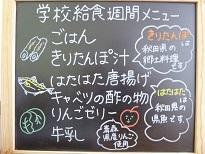 学校給食週間メニュー
ごはん
きりたんぽ汁
はたはた唐揚げ
キャベツの酢の物
りんごゼリー
牛乳
きりたんぽは
秋田県の
郷土料理
です
はたはたは
秋田県の
県魚です
青森
県産りんご
使用